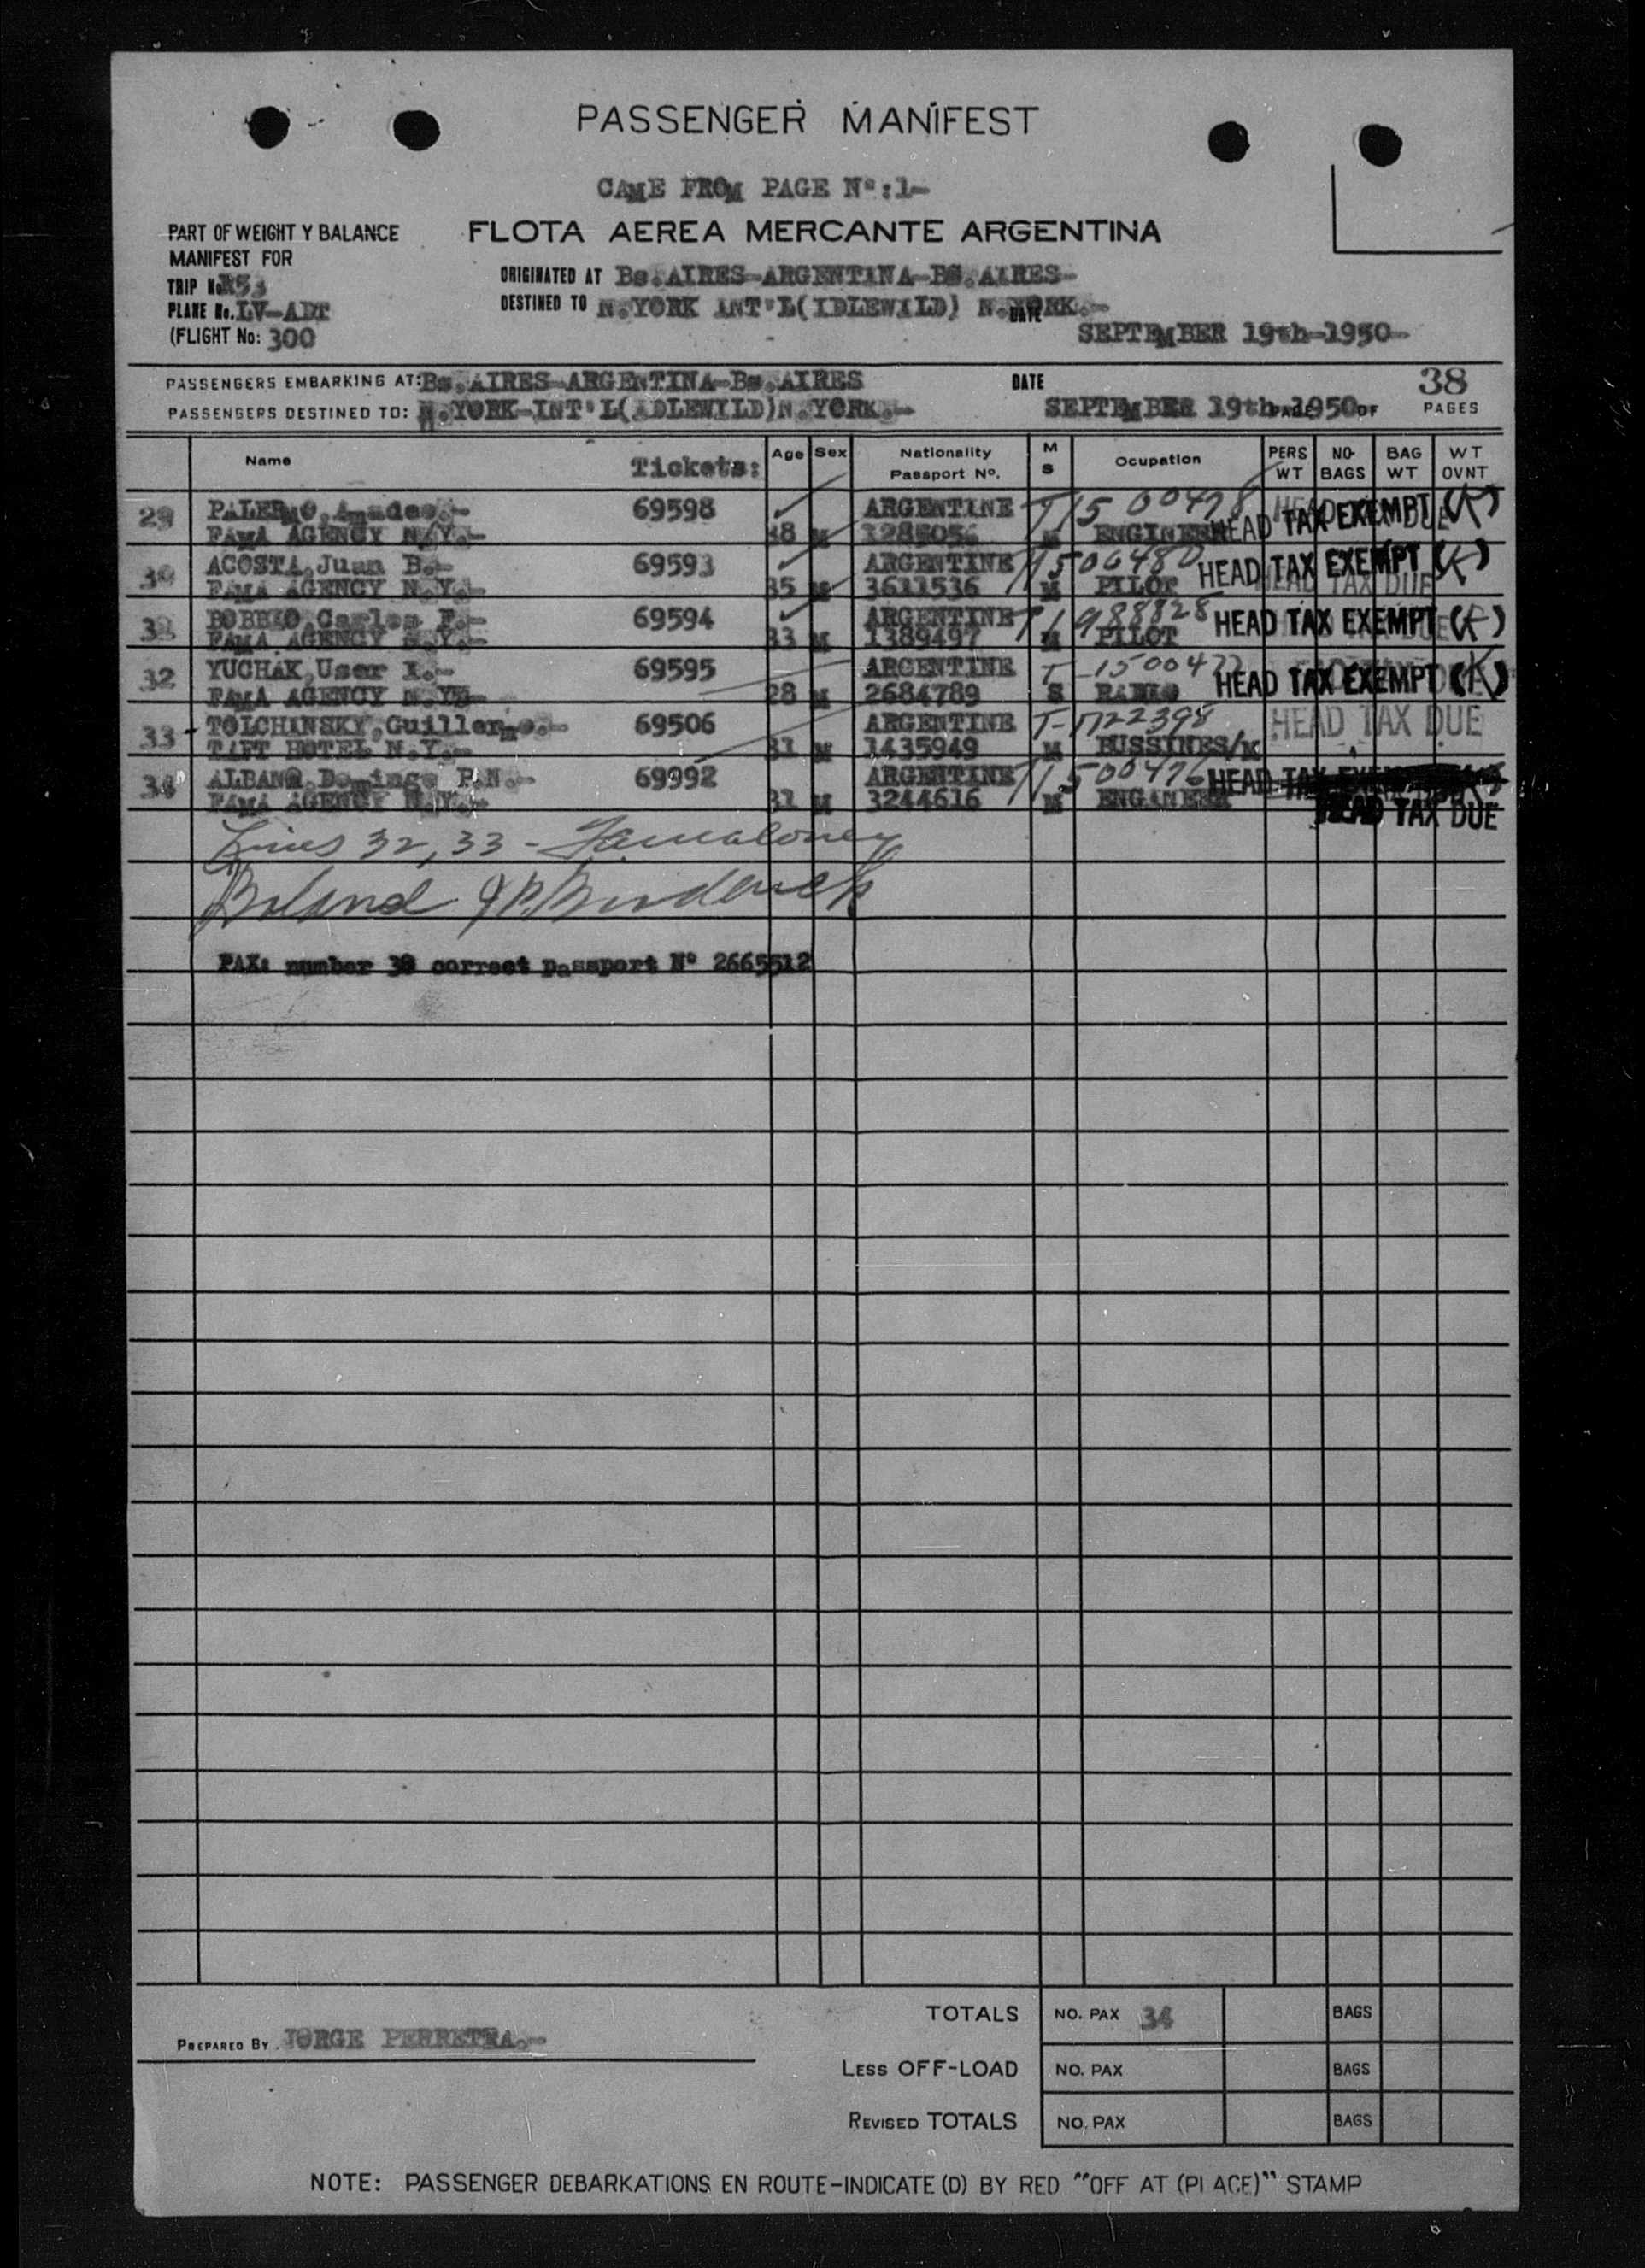 PASSENGER MANIFEST
CAME FROM PAGE Nº:1-
PART OF WEIGHT Y BALANCE
MANIFEST FOR
FLOTA AEREA MERCANTE ARGENTINA
TRIP No.
ORIGINATED AT Bs.AIRES-ARGENTINA-BS.AIRES-
PLANE No. LV-ADT
DESTINED TO N.YORK INT'L(IDLEWILD) N.YORK.-
DATE
(FLIGHT No: 300
SEPTEMBER 19th-1950-
PASSENGERS EMBARKING AT: Bs.AIRES-ARGENTINA-Bs.AIRES
DATE
38
PASSENGERS DESTINED TO: N.YORK-INT'L(ADLEWILD)N.YORK.-
SEPTEMBER 19th-1950 PAGE OF PAGES
Name Tickets: Age Sex Nationality Passport No. M S Ocupation PERS WT NO- BAGS BAG WT WT OVNT
29 PALERMO, Amadeo.- 69598 ARGENTINE T1500478 HEAD TAX EXEMPT (K)
FAMA AGENCY N.Y.- 38 M M ENGINEER
30 ACOSTA, Juan B.- 69593 ARGENTINE T1500480 HEAD TAX EXEMPT (K)
FAMA AGENCY N.Y.- 35 M 3611536 M PILOT HEAD TAX DUE
BOBBIO, Carlos F.- 69594 ARGENTINE T1988828 HEAD TAX EXEMPT (K)
FAMA AGENCY N.Y.- 33 M 1389497 M PILOT
32 YUCHAK, User I.- 69595 ARGENTINE T-1500477 HEAD TAX EXEMPT (K)
FAMA AGENCY N.Y.- 28 M 2684789 S RADIO
33 TOLCHINSKY, Guillermo.- 69506 ARGENTINE T-1722398 HEAD TAX DUE
TAFT HOTEL N.Y.- 31 M 1435949 M BUSSINES/M
34 ALBANO, Domingo P.N.- 69992 ARGENTINE T1500476 HEAD TAX
FAMA AGENCY N.Y.- 31 M 3244616 M ENGANEER HEAD TAX DUE
Lines 32, 33 -
Boland
PAX: number 30 correct passport Nº 2665512
TOTALS NO. PAX 34 BAGS
PREPARED BY. JORGE PERRETRA.-
LESS OFF-LOAD NO. PAX BAGS
REVISED TOTALS NO. PAX BAGS
NOTE: PASSENGER DEBARKATIONS EN ROUTE-INDICATE (D) BY RED "OFF AT (PLACE)" STAMP